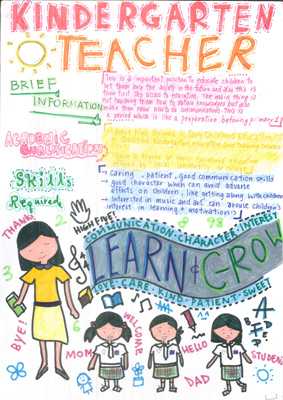 KINDERGARTEN
TEACHER
BRIEF
INFORMATION
This is a important position to educate children to
let them help the society in the future and also this is
their first the access to education. The main thing is
not teaching them how to obtain knowledge but also
make them know how to do communications. This is
a period which is like a preparation before primary 1
ACADEMIC
QUALIFICATIONS
Early Childhood Education
Skills
Required
Caring, patient, good communication skills
good character which can avoid adverse
effects on children, like getting along with children
Interested in music and art can arouse children's
interest in learning + motivations
THANKS
HIGH FIVE!
COMMUNICATION CHARACTER INTEREST
LEARN & GROW
LOVE CARE KIND PATIENT SWEET
2
3
6
8
98
BYE!
MOM
WELCOME
HELLO
DAD
STUDENT
A
B